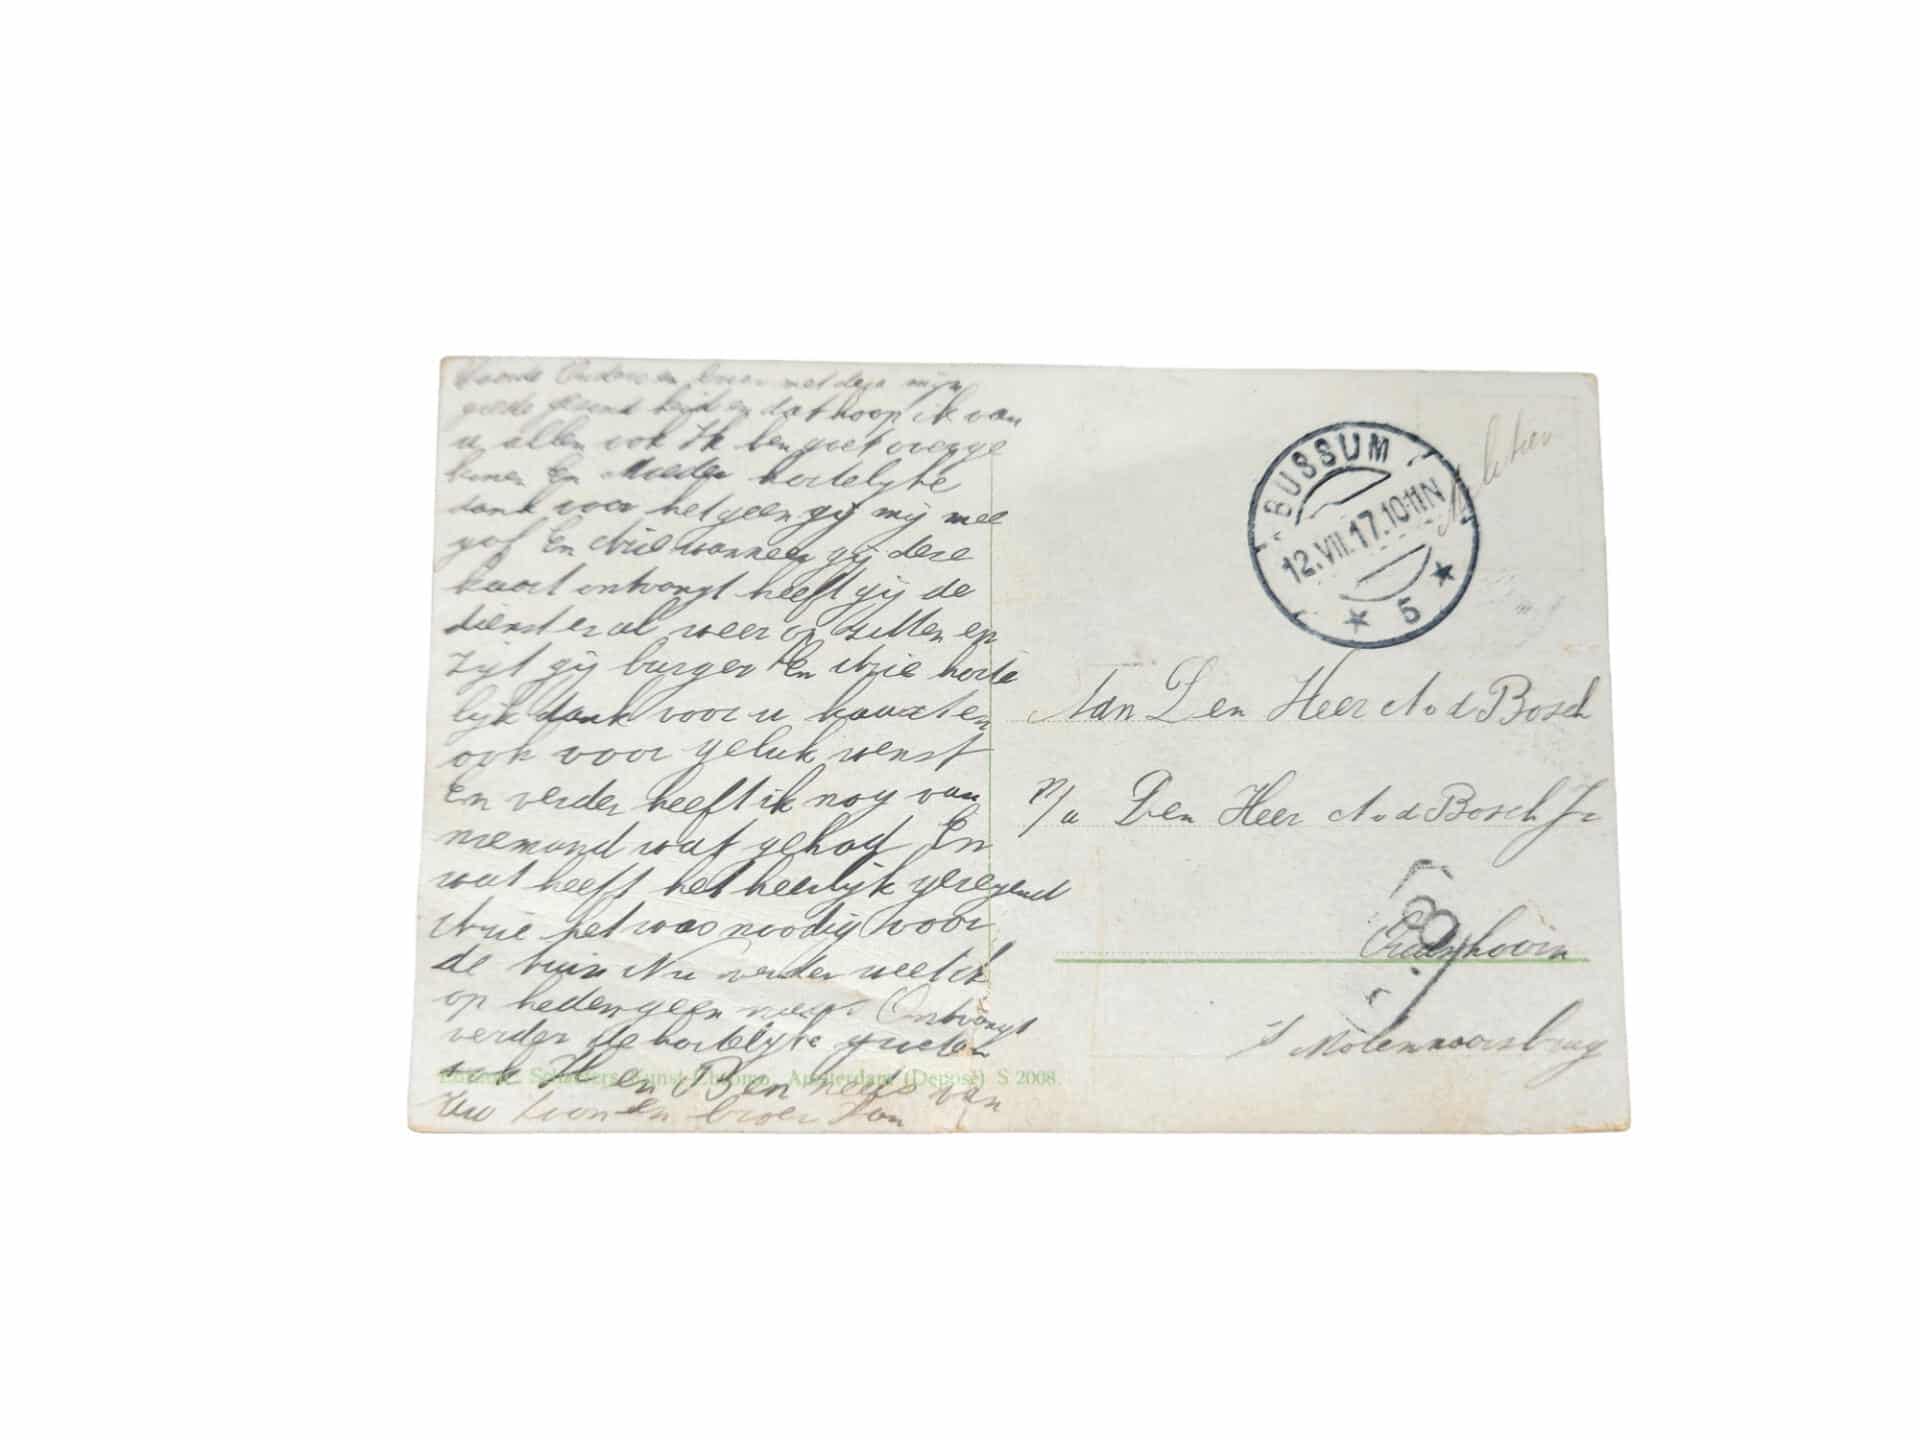 Waarde Ouders en broer met deze mijn
goede gesond heid en dat hoop ik van
u allen ook Ik ben goet overge
komen En Moeder hartelijke
dank voor het geen gij mij mee
gaf En Arie wanneer gij deze
kaart ontvangt heeft gij de
dienst er al weer op zitten en
zijt gij burger En Arie harte
lijk dank voor u kaarten
ook voor geluk wenst
En verder heeft ik nog van
niemand wat gehad En
wat heeft het heerlijk geregend
Arie het was noodig voor
de tuin Nu verder weet ik
op heden geen nieuws Ontvangt
verder de hartelijke groeten
ook H en Ben heefs van
Uw zoon en broer Jan
Schaefers Kunst Chromo, Amsterdam (Deposé) S 2008.
BUSSUM
12.VII.17.10-11N
5
Militair
Aan Den Heer A v d Bosch
p/a Den Heer A v d Bosch Jr
8
Oudenhoven
Molenaarsbrug